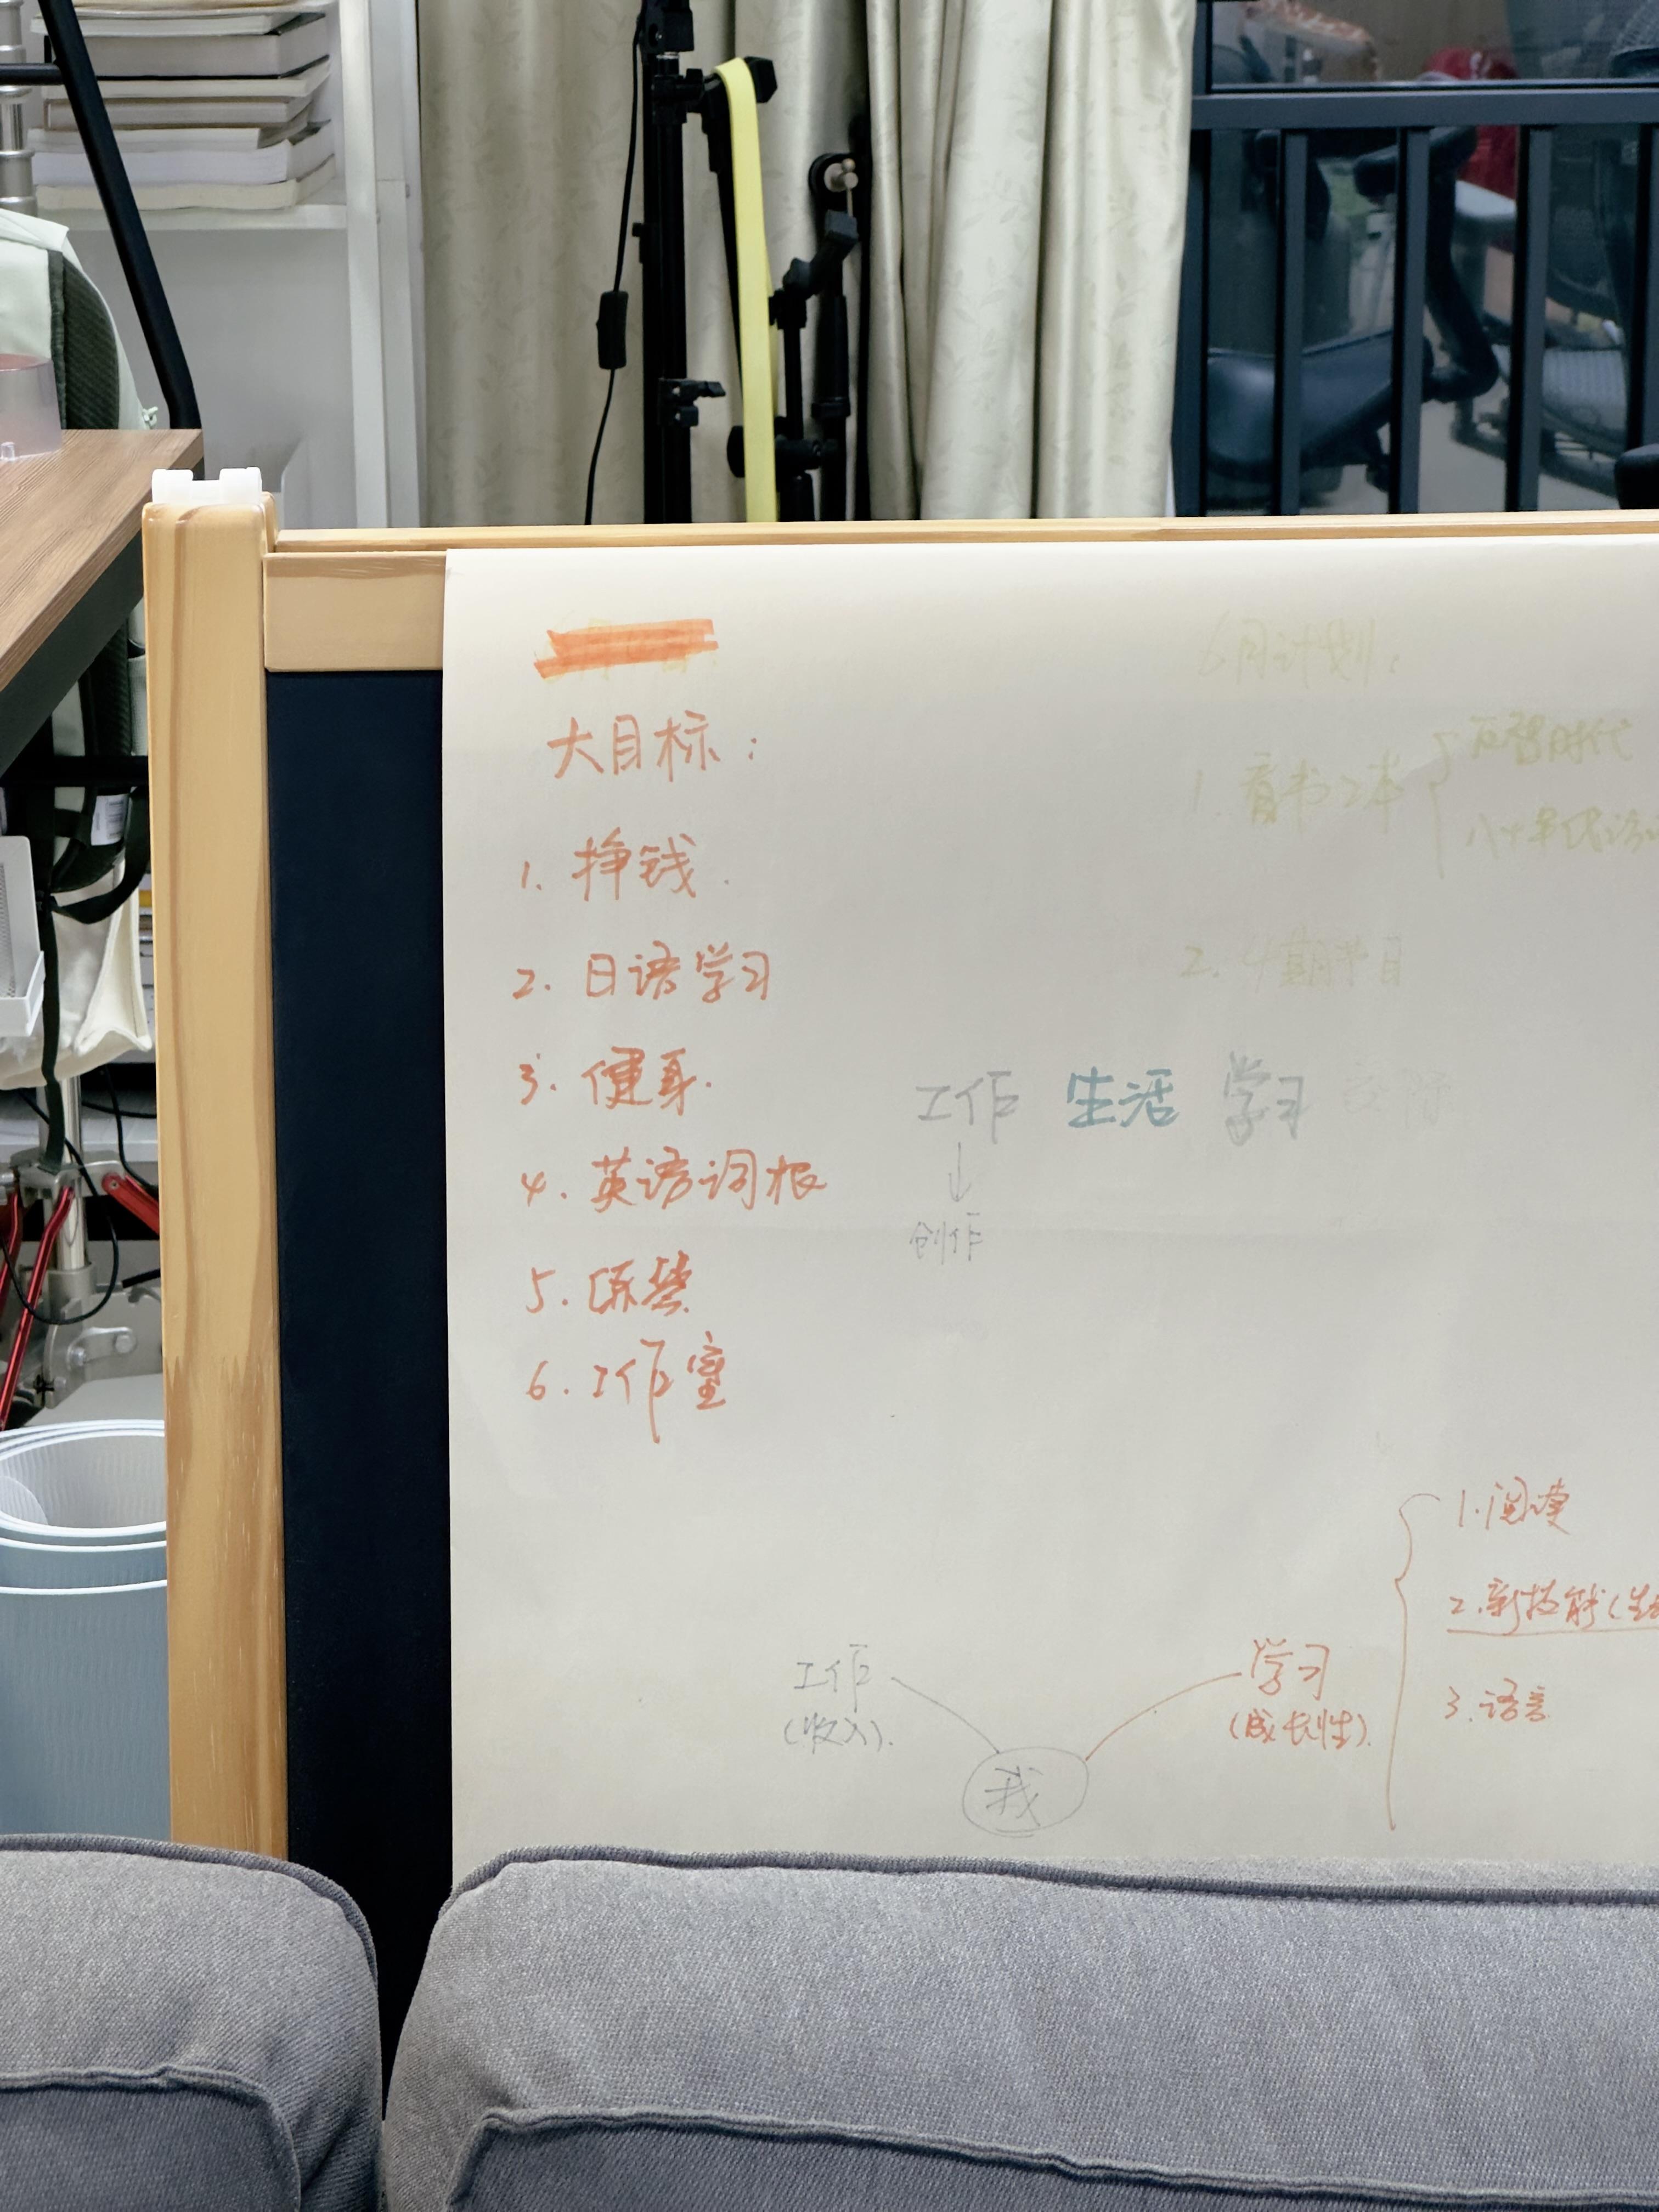 大目标：
1. 挣钱.
2. 日语学习
3. 健身.
4. 英语词根
5.
6. 工作室
6月计划：
1. 看书2本
八十年代访
2. 4期节目
工作 生活 学习
↓
创作
工作
(收入).
我
学习
(成长性).
1. 阅读
2. 新技能(生
3. 语言